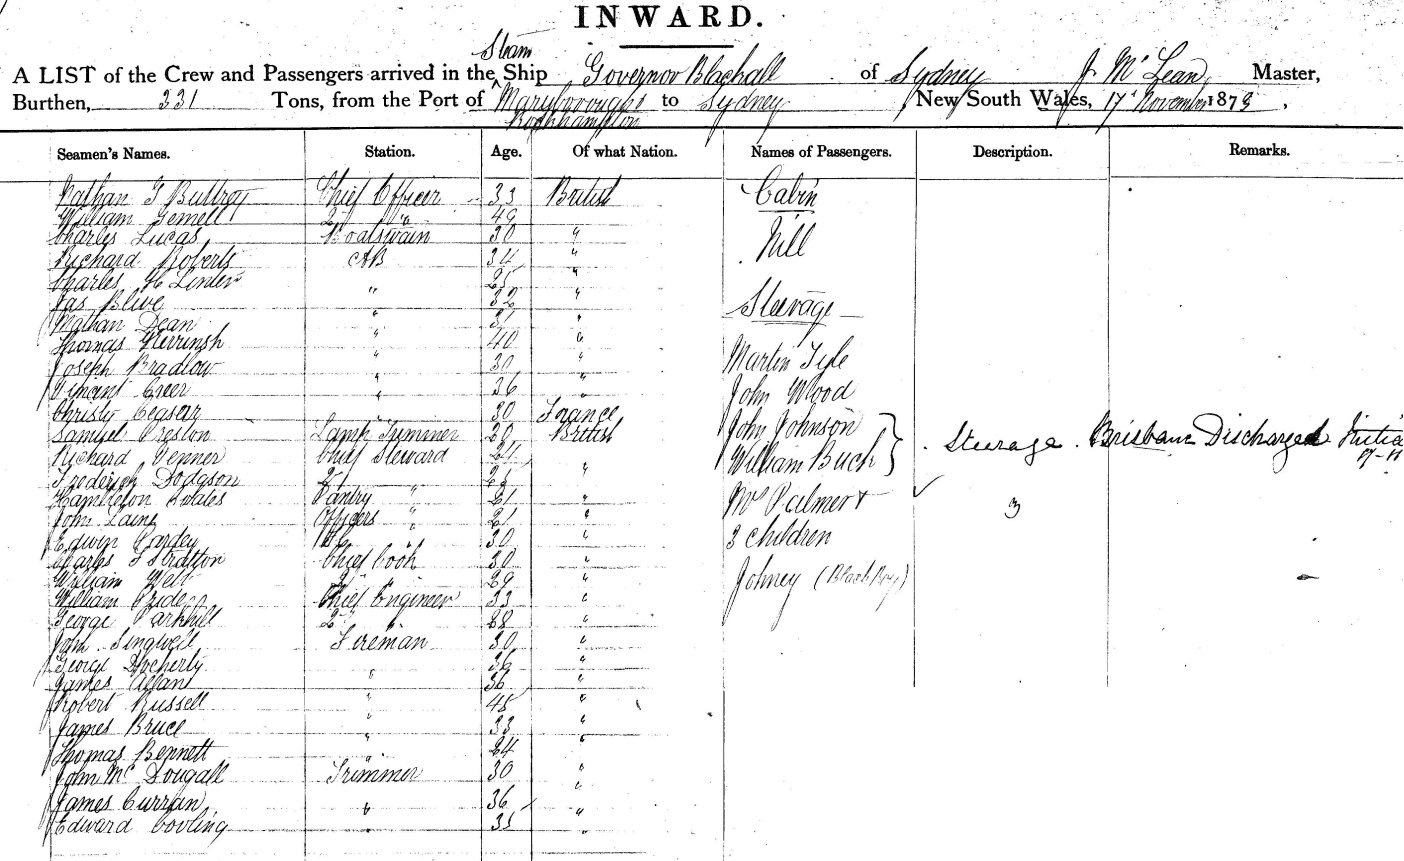 INWARD.
Steam
A LIST of the Crew and Passengers arrived in the Ship Governor Blackall of Sydney J McLean Master,
Burthen, 331 Tons, from the Port of Maryborough to Sydney, New South Wales, 17 November 1878,
Rockhampton
Seamen's Names. Station. Age. Of what Nation. Names of Passengers. Description. Remarks.
Nathan G Buttrey Chief Officer 33 British Cabin
William Gemell 2 " 49
Charles Lucas Boatswain 30 " Nill
Richard Roberts AB 34 "
Charles H Linder " 25 "
Jas " 32 " Steerage
Nathan Dean " 31 "
Thomas " 40 "
Joseph Bradlow " 30 " Martin
Creer " 36 " John Wood
Christy Ceasar " 30 France John Johnson
Samuel Preston Lamp Trimmer 29 British William Buch Steerage Brisbane Discharged
Richard Penner Chief Steward
Frederick Dodgson 2 " "
Hambleton Wales Pantry " 21 " Mrs Palmer + 3
John Laing Officers " 21 "
Edwin 30 " 3 children
Charles F Stratton Chief Cook 30 "
William 2 " 29 " Johney (Black Boy)
William Chief Engineer 33 "
George Parkhill 2 " 28 "
John Singwell Fireman 30 "
George Docherty 36 "
James Allan " 36 "
Robert Russell " 45 "
James Bruce " 33 "
Thomas Bennett " 24 "
John McDougall Trimmer 30 "
James Curran " 36 "
Edward Cooling " 35 "